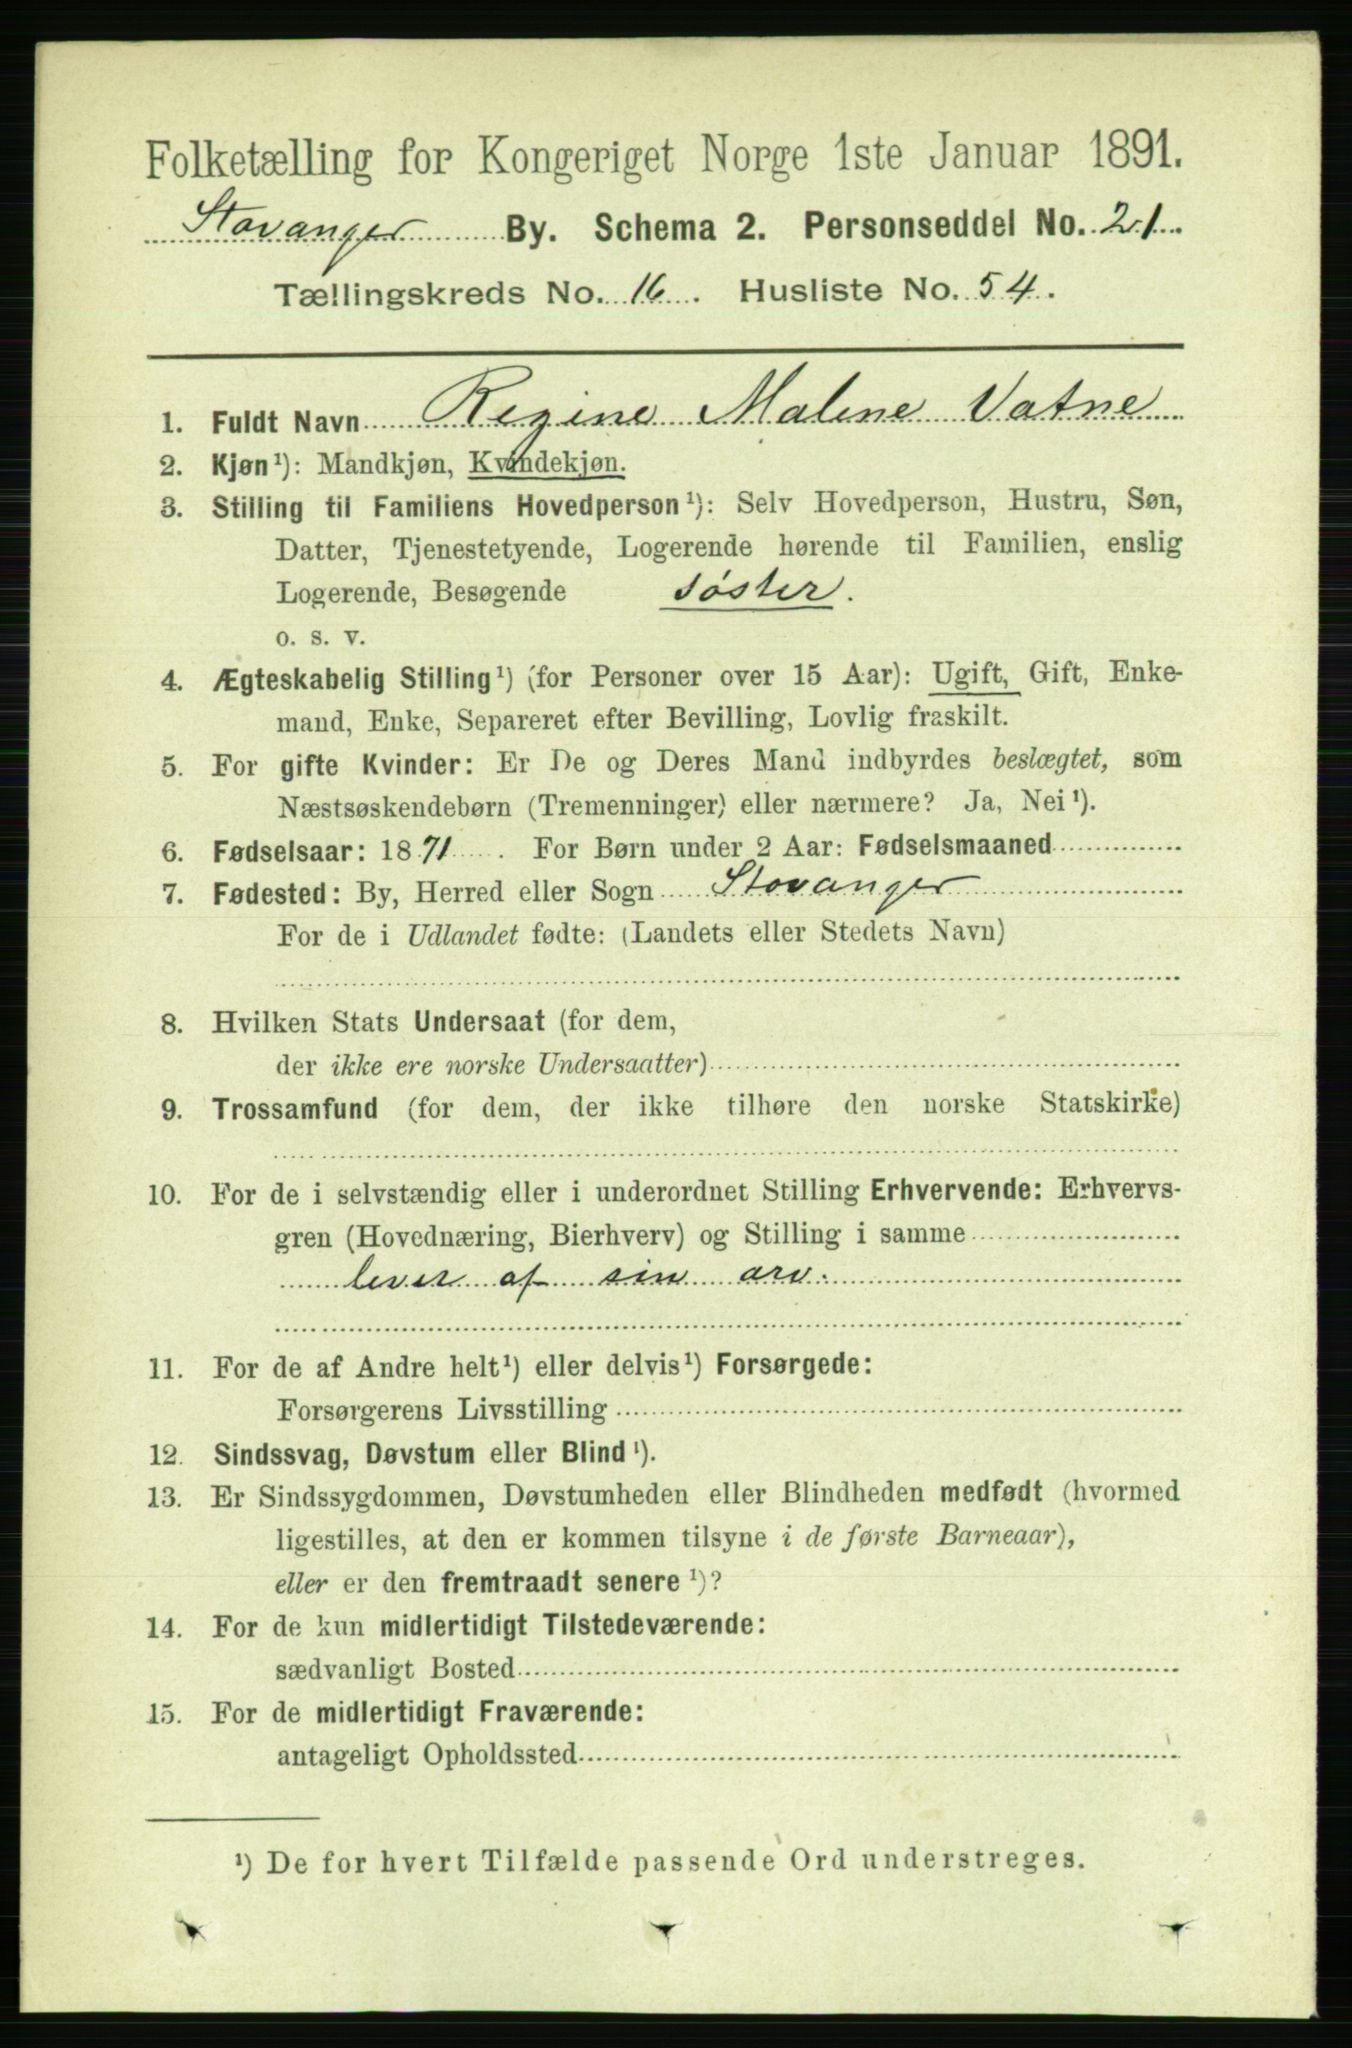 Folketælling for Kongeriget Norge 1ste Januar 1891.
Stavanger By. Schema 2. Personseddel No. 21.
Tællingskreds No. 16. Husliste No. 54.
1. Fuldt Navn Regine Malene Vatne
2. Kjøn¹): Mandkjøn, Kvindekjøn.
3. Stilling til Familiens Hovedperson¹): Selv Hovedperson, Hustru, Søn,
Datter, Tjenestetyende, Logerende hørende til Familien, enslig
Logerende, Besøgende søster.
o. s. v.
4. Ægteskabelig Stilling¹) (for Personer over 15 Aar): Ugift, Gift, Enke-
mand, Enke, Separeret efter Bevilling, Lovlig fraskilt.
5. For gifte Kvinder: Er De og Deres Mand indbyrdes beslægtet, som
Næstsøskendebørn (Tremenninger) eller nærmere? Ja, Nei¹).
6. Fødselsaar: 1871. For Børn under 2 Aar: Fødselsmaaned
7. Fødested: By, Herred eller Sogn Stavanger
For de i Udlandet fødte: (Landets eller Stedets Navn)
8. Hvilken Stats Undersaat (for dem,
der ikke ere norske Undersaatter)
9. Trossamfund (for dem, der ikke tilhøre den norske Statskirke)
10. For de i selvstændig eller i underordnet Stilling Erhvervende: Erhvervs-
gren (Hovednæring, Bierhverv) og Stilling i samme
lever af sin arv.
11. For de af Andre helt¹) eller delvis¹) Forsørgede:
Forsørgerens Livsstilling
12. Sindssvag, Døvstum eller Blind¹).
13. Er Sindssygdommen, Døvstumheden eller Blindheden medfødt (hvormed
ligestilles, at den er kommen tilsyne i de første Barneaar),
eller er den fremtraadt senere¹)?
14. For de kun midlertidigt Tilstedeværende:
sædvanligt Bosted
15. For de midlertidigt Fraværende:
antageligt Opholdssted
¹) De for hvert Tilfælde passende Ord understreges.